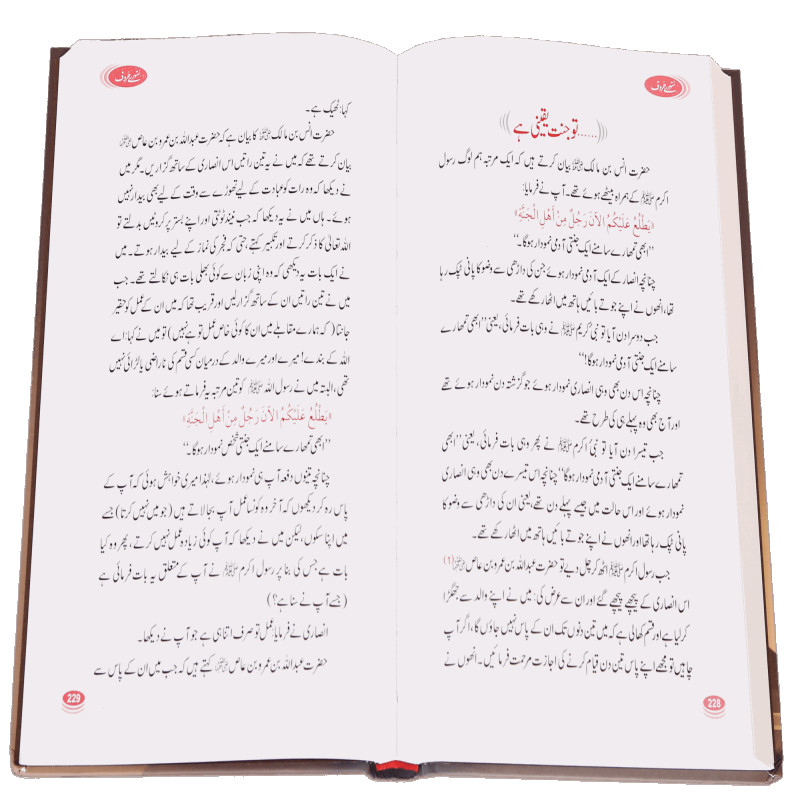 سنہرے حروف
......تو جنت یقینی ہے
حضرت انس بن مالک رضی اللہ عنہ بیان کرتے ہیں کہ ایک مرتبہ ہم لوگ رسول
اکرم ﷺ کے ہمراہ بیٹھے ہوئے تھے۔ آپ نے فرمایا:
«يَطْلُعُ عَلَيْكُمُ الآنَ رَجُلٌ مِنْ أَهْلِ الْجَنَّةِ»
”ابھی تمھارے سامنے ایک جنتی آدمی نمودار ہوگا۔“
چنانچہ انصار کے ایک آدمی نمودار ہوئے جن کی داڑھی سے وضو کا پانی ٹپک رہا
تھا، انھوں نے اپنے جوتے بائیں ہاتھ میں اٹھا رکھے تھے۔
جب دوسرا دن آیا تو نبی کریم ﷺ نے وہی بات فرمائی، یعنی ”ابھی تمھارے
سامنے ایک جنتی آدمی نمودار ہوگا!“
چنانچہ اس دن بھی وہی انصاری نمودار ہوئے جو گزشتہ دن نمودار ہوئے تھے
اور آج بھی وہ پہلے ہی کی طرح تھے۔
جب تیسرا دن آیا تو نبی اکرم ﷺ نے پھر وہی بات فرمائی، یعنی ”ابھی
تمھارے سامنے ایک جنتی آدمی نمودار ہوگا“ چنانچہ اس تیسرے دن بھی وہی انصاری
نمودار ہوئے اور اس حالت میں جیسے پہلے دن تھے، یعنی ان کی داڑھی سے وضو کا
پانی ٹپک رہا تھا اور انھوں نے اپنے جوتے بائیں ہاتھ میں اٹھا رکھے تھے۔
جب رسول اکرم ﷺ اٹھ کر چل دیے تو حضرت عبداللہ بن عمرو بن عاص رضی اللہ عنہ (۲)
اس انصاری کے پیچھے پیچھے گئے اور ان سے عرض کی: میں نے اپنے والد سے جھگڑا
کر لیا ہے اور قسم کھالی ہے کہ میں تین دنوں تک ان کے پاس نہیں جاؤں گا، اگر آپ
چاہیں تو مجھے اپنے پاس تین دن قیام کرنے کی اجازت مرحمت فرمائیں۔ انھوں نے
228
سنہرے حروف
کہا: ٹھیک ہے۔
حضرت انس بن مالک رضی اللہ عنہ کا بیان ہے کہ حضرت عبداللہ بن عمرو بن عاص رضی اللہ عنہ
بیان کرتے تھے کہ میں نے یہ تین راتیں اس انصاری کے ساتھ گزاریں۔ مگر میں
نے دیکھا کہ وہ رات کو عبادت کے لیے تھوڑے سے وقت کے لیے بھی بیدار نہیں
ہوئے۔ ہاں میں نے یہ دیکھا کہ جب نیند ٹوٹتی اور اپنے بستر پر کروٹیں بدلتے تو
اللہ تعالیٰ کا ذکر کرتے اور تکبیر کہتے حتی کہ فجر کی نماز کے لیے بیدار ہوتے۔ میں
نے ایک بات یہ دیکھی کہ وہ اپنی زبان سے کوئی بھلی بات ہی نکالتے تھے۔ جب
میں نے تین راتیں ان کے ساتھ گزار لیں اور قریب تھا کہ میں ان کے عمل کو حقیر
جانتا (کہ ہمارے مقابلے میں ان کا کوئی خاص عمل تو ہے نہیں) تو میں نے کہا: اے
اللہ کے بندے! میرے اور میرے والد کے درمیان کسی قسم کی ناراضی یا لڑائی نہیں
تھی، البتہ میں نے رسول اللہ ﷺ کو تین مرتبہ یہ فرماتے ہوئے سنا:
«يَطْلُعُ عَلَيْكُمُ الآنَ رَجُلٌ مِنْ أَهْلِ الْجَنَّةِ»
”ابھی تمھارے سامنے ایک جنتی شخص نمودار ہوگا۔“
چنانچہ تینوں دفعہ آپ ہی نمودار ہوئے، لہٰذا میری خواہش ہوئی کہ آپ کے
پاس رہ کر دیکھوں کہ آخر وہ کونسا عمل آپ بجا لاتے ہیں (جو میں نہیں کرتا) جسے
میں اپنا سکوں، لیکن میں نے دیکھا کہ آپ کوئی زیادہ عمل نہیں کرتے، پھر وہ کیا
بات ہے جس کی بنا پر رسول اکرم ﷺ نے آپ کے متعلق یہ بات فرمائی ہے
(جسے آپ نے سنا ہے؟)
انصاری نے فرمایا: عمل تو صرف اتنا ہی ہے جو آپ نے دیکھا۔
حضرت عبداللہ بن عمرو بن عاص رضی اللہ عنہ کہتے ہیں کہ جب میں ان کے پاس سے
229